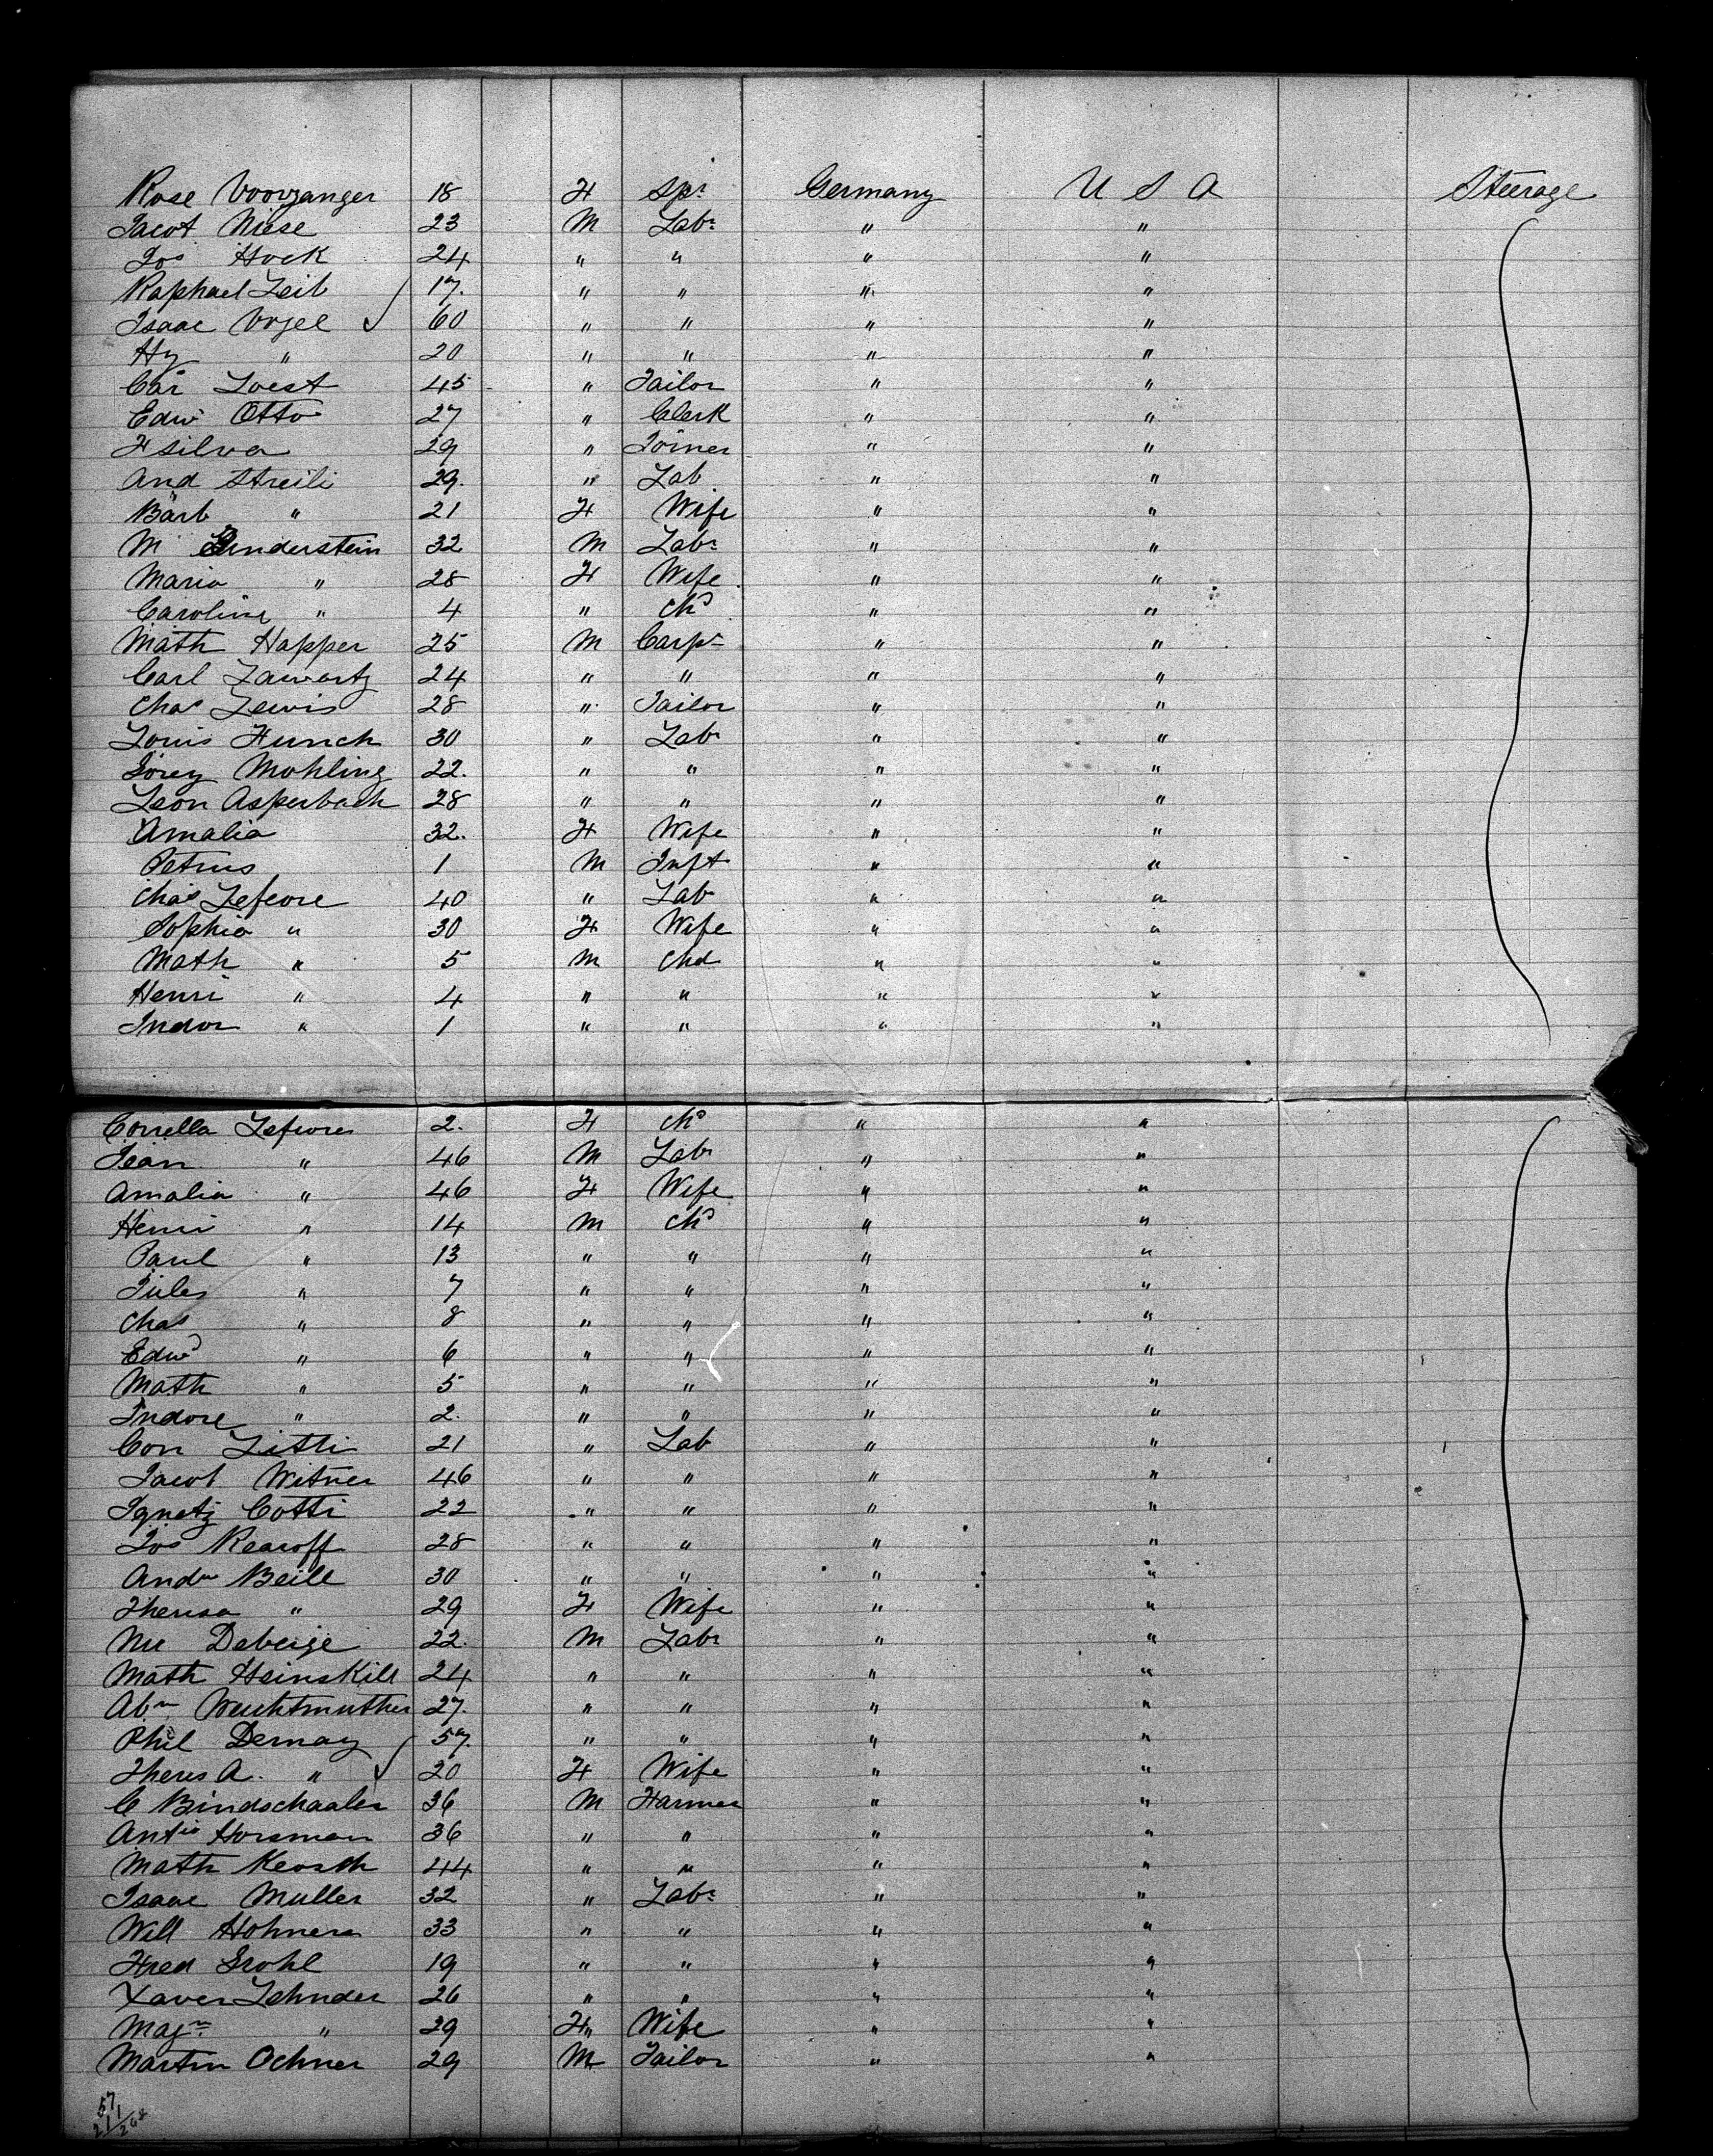 Rose Voorzanger 18 F Spr Germany U S A Steerage
Jacob Niese 23 M Labr " "
Jos Hock 24 " " " "
Raphael Leib 17. " " " "
Isaac Vogel 60 " " " "
Hy " 20 " " " "
Car Loest 45 " Tailor " "
Edw Otto 27 " Clerk " "
F Silva 29 " Joiner " "
And Streili 29. " Lab " "
Barb " 21 F Wife " "
M Linderstein 32 M Labr " "
Maria " 28 F Wife " "
Caroline " 4 " Chd " "
Math Happer 25 M Carpr " "
Carl Lawartz 24 " " " "
Chas Lewis 28 " Tailor " "
Louis Funch 30 " Lab " "
Mohling 22. " " " "
Leon Asperbach 28 " " " "
Amalia 32. F Wife " "
Petrus 1 M Inft " "
Chas Lefevre 40 " Lab " "
Sophia " 30 F Wife " "
Math " 5 M Chd " "
Henri " 4 " " " "
Indor " 1 " " " "
Corrella Lefevre 2. F Chd " "
Jean " 46 M Labr " "
Amalia " 46 F Wife " "
Henri " 14 M Chd " "
Paul " 13 " " " "
Jules " 7 " " " "
Chas " 8 " " " "
Edwd " 6 " " " "
Math " 5 " " " "
Indore " 2. " " " "
Con Litti 21 " Lab " "
Jacob Witner 46 " " " "
Ignatz Cotti 22 " " " "
Jos Rearoff 28 " " " "
Andw Beill 30 " " " "
Theresa " 29 F Wife " "
Debeige 22. M Labr " "
Math Heinskill 24 " " " "
Abm Weichtmuther 27. " " " "
Phil Dernay 57. " " " "
Theres A. " 20 F Wife " "
C Bindschaaler 36 M Farmer " "
Antio Horsman 36 " " " "
Math Keorth 44 " " " "
Isaac Muller 32 " Labr " "
Will Hohners 33 " " " "
Fred Grohl 19 " " " "
Xaver Lehnder 26 " " " "
Magn " 29 F Wife " "
Martin Ochner 29 M Tailor " "
57
211/268